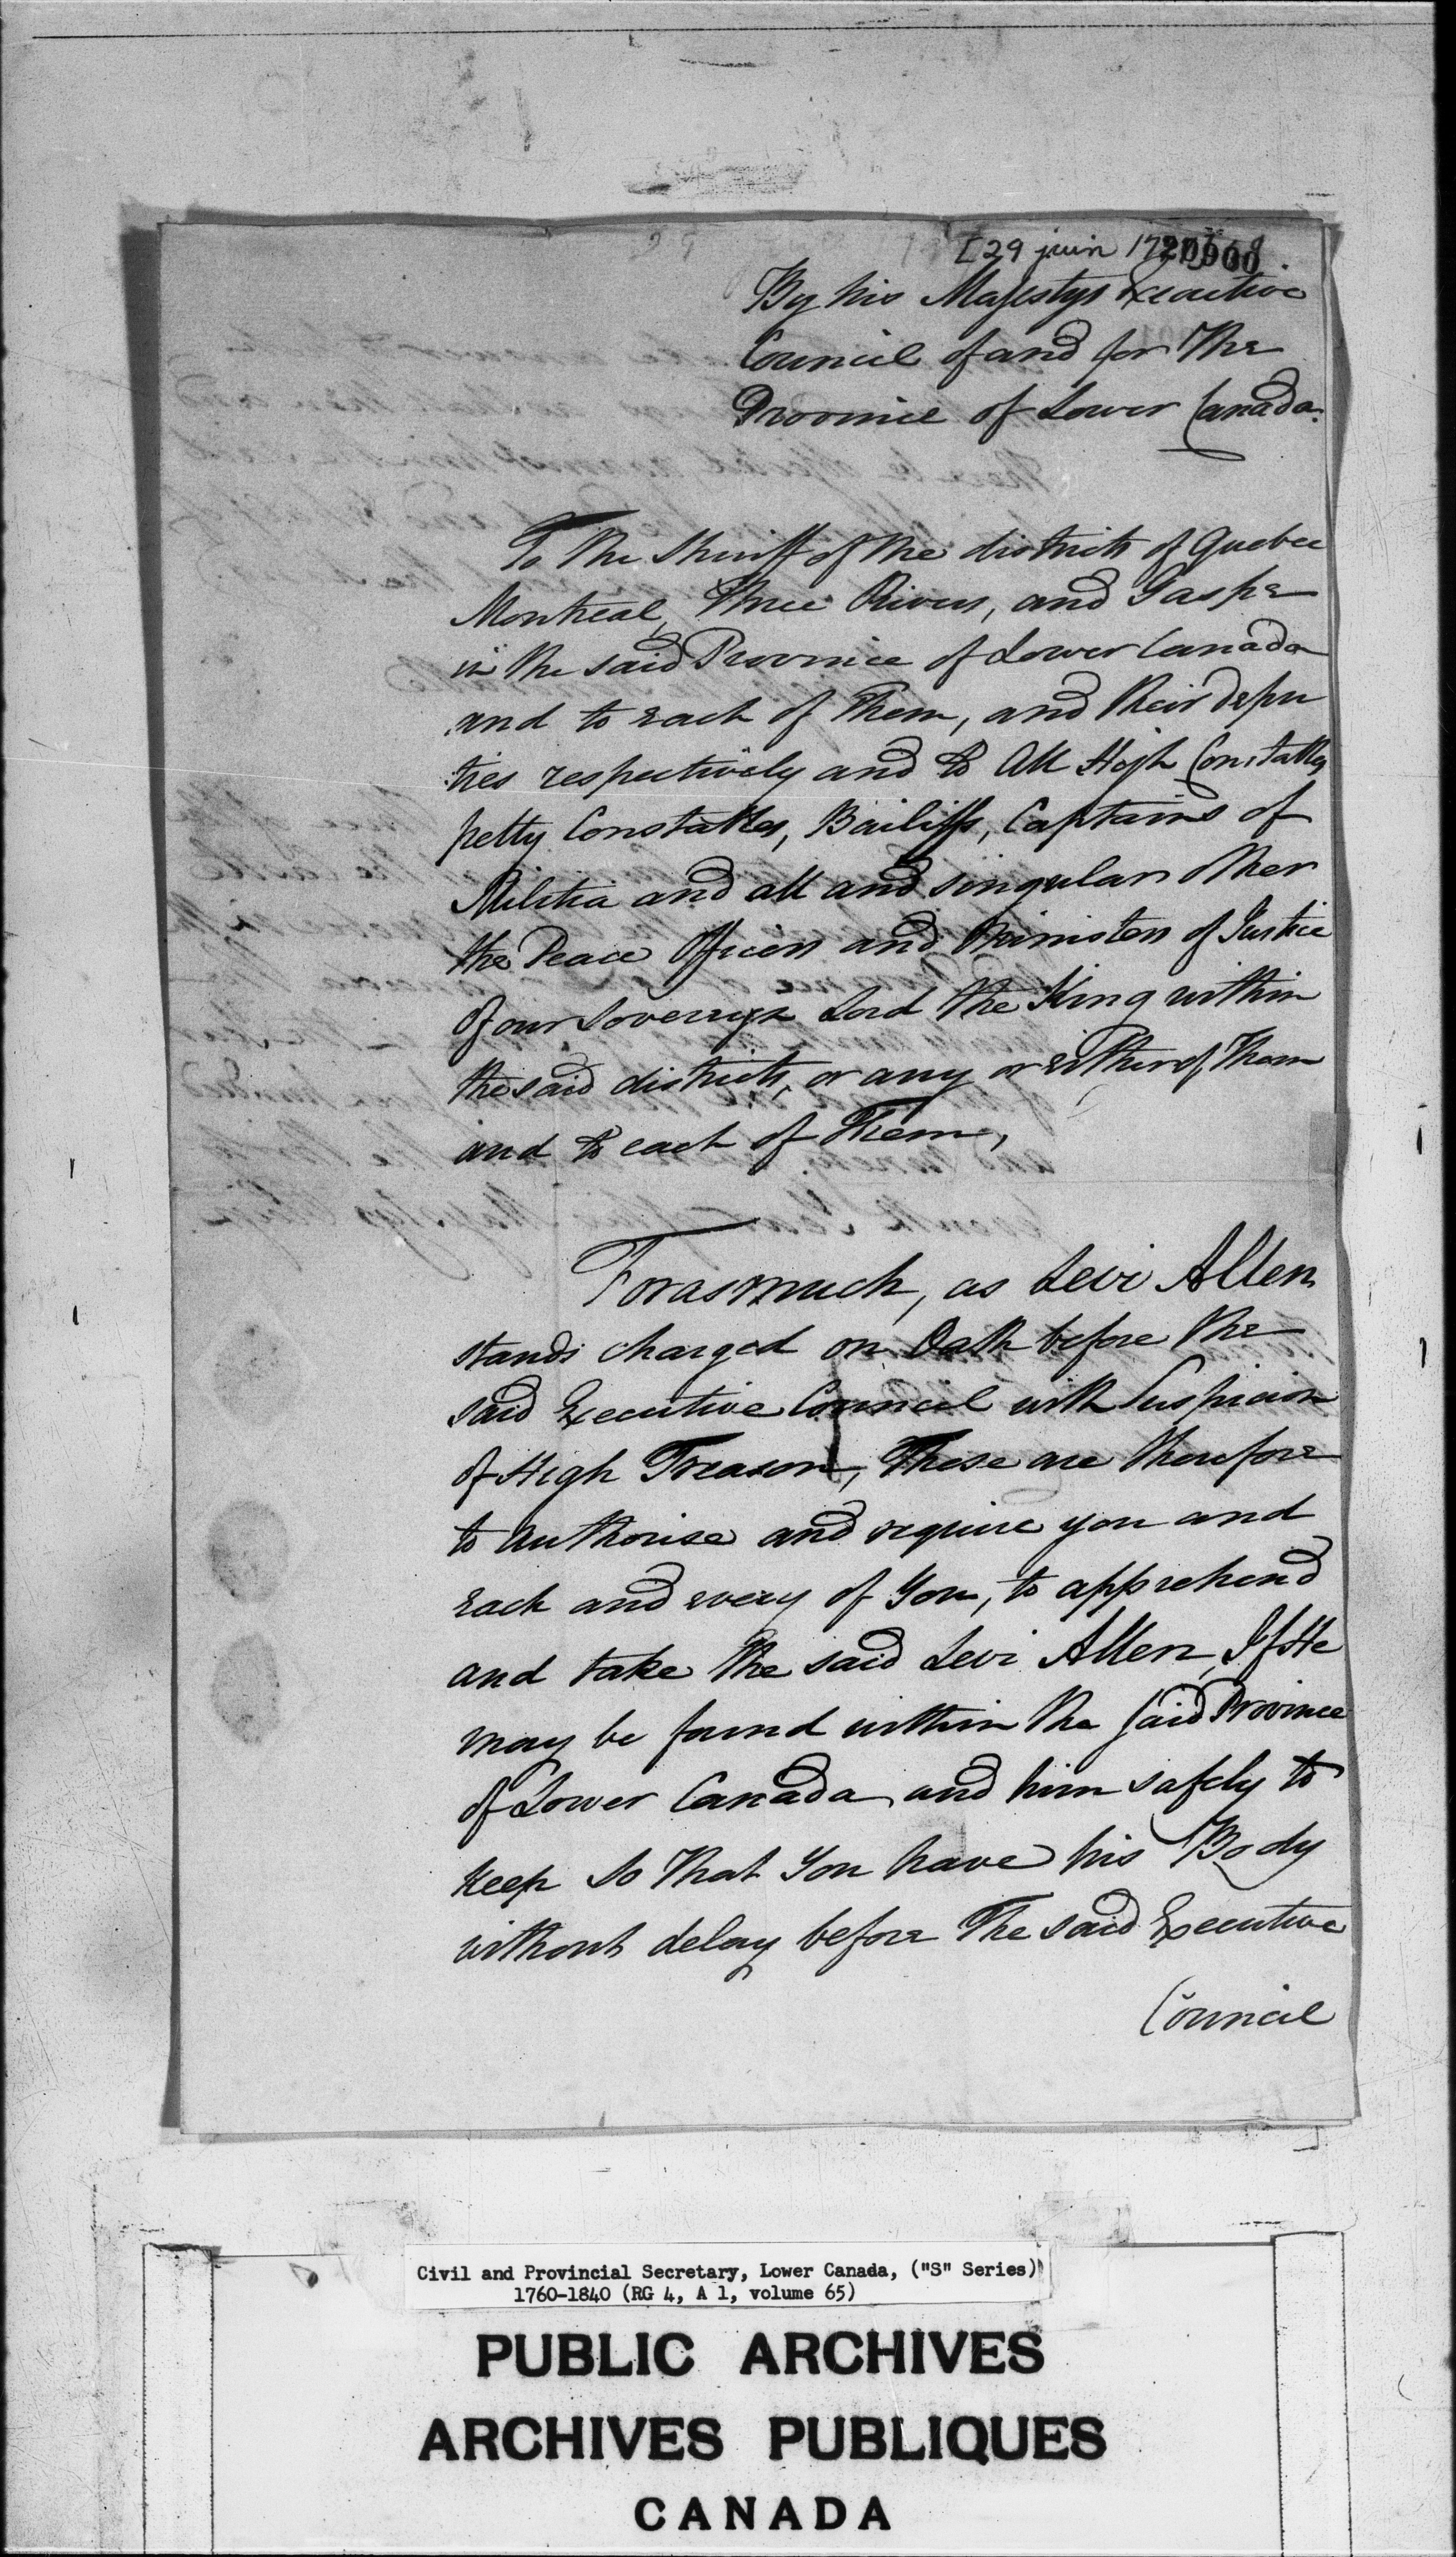 [29 juin 17
20900
By his Majestys Executive
Council of and for The
Province of Lower Canada.
To The Sheriff of the districts of Quebec
Montreal, Three Rivers, and Gaspe
in the said Province of Lower Canada
and to each of Them, and their depu
ties respectively and to All High Constables
petty Constables, Bailiffs, Captains of
Militia and all and singular other
the Peace Officers and Ministers of Justice
of our Sovereign Lord the King within
the said districts, or any or either of Them
and to each of Them,
Forasmuch, as Levi Allen
stands charged on Oath before the
said Executive Council with Suspicion
of High Treason, These are therefore
to authorise and require you and
each and every of You, to apprehend
and take the said Levi Allen, If He
may be found within the said Province
of Lower Canada and him safely to
keep so That You have his Body
without delay before The said Executive
Council
Civil and Provincial Secretary, Lower Canada, ("S" Series)
1760-1840 (RG 4, A 1, volume 65)
PUBLIC ARCHIVES
ARCHIVES PUBLIQUES
CANADA